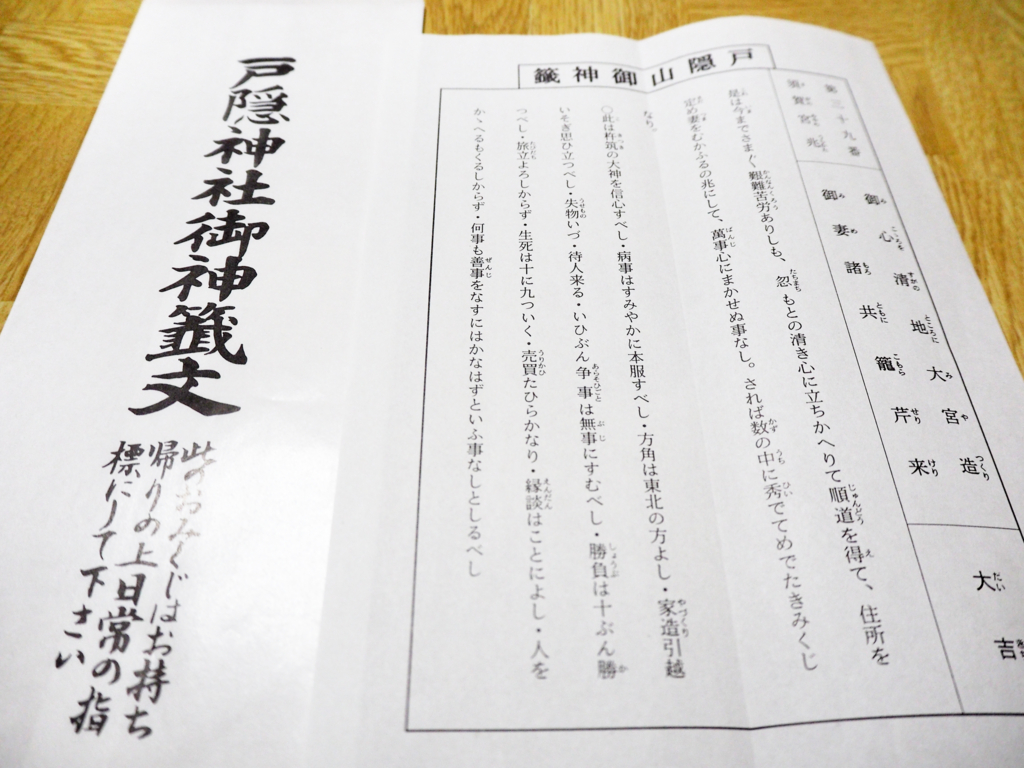 戸隠山御神籤
第三十九番
須賀宮兆
御心清地大宮造
御妻諸共籠芹来
大吉
是は今までさまざま艱難苦労ありしも、忽もとの清き心に立ちかへりて順道を得て、住所を
定め妻をむかふるの兆にして、萬事心にまかせぬ事なし。されば数の中に秀でてめでたきみくじ
なり。
○此は杵築の大神を信心すべし・病事はすみやかに本服すべし・方角は東北の方よし・家造引越
いそぎ思ひ立つべし・失物いづ・待人来る・いひぶん争事は無事にすむべし・勝負は十ぶん勝
つべし・旅立よろしからず・生死は十に九ついく・売買たひらかなり・縁談はことによし・人を
かゝへるもくるしからず・何事も善事をなすにはかなはずといふ事なしとしるべし
戸隠神社御神籤文
此のおみくじはお持ち
帰りの上日常の指
標にして下さい